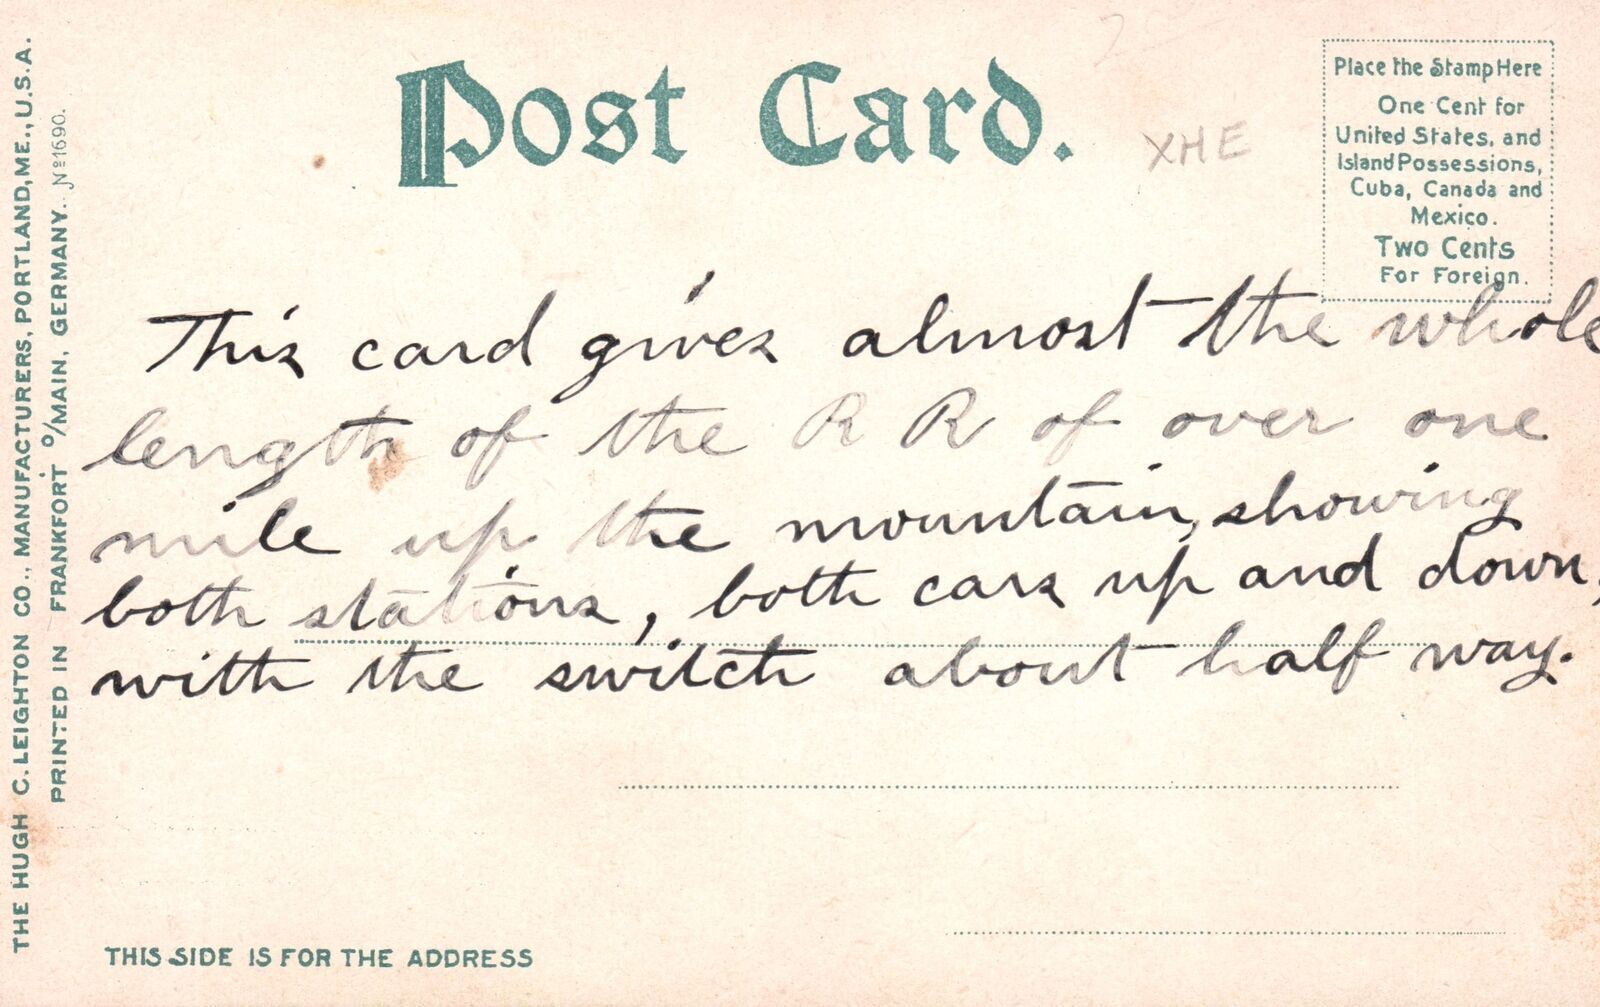 Post Card.
XHE
Place the Stamp Here
One Cent for
United States, and
Island Possessions,
Cuba, Canada and
Mexico.
Two Cents
For Foreign.
This card gives almost the whole
length of the R R of over one
mile up the mountain, showing
both stations, both cars up and down,
with the switch about half way.
THE HUGH C. LEIGHTON CO., MANUFACTURERS, PORTLAND, ME., U.S.A.
PRINTED IN FRANKFORT o/MAIN, GERMANY. No 1690.
THIS SIDE IS FOR THE ADDRESS